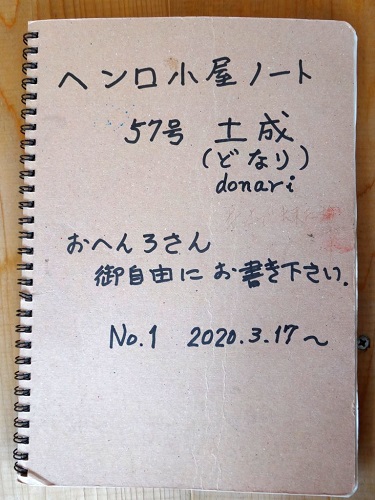 ヘンロ小屋ノート
57号 土成
(どなり)
donari
おへんろさん
御自由にお書き下さい.
No.1 2020.3.17~